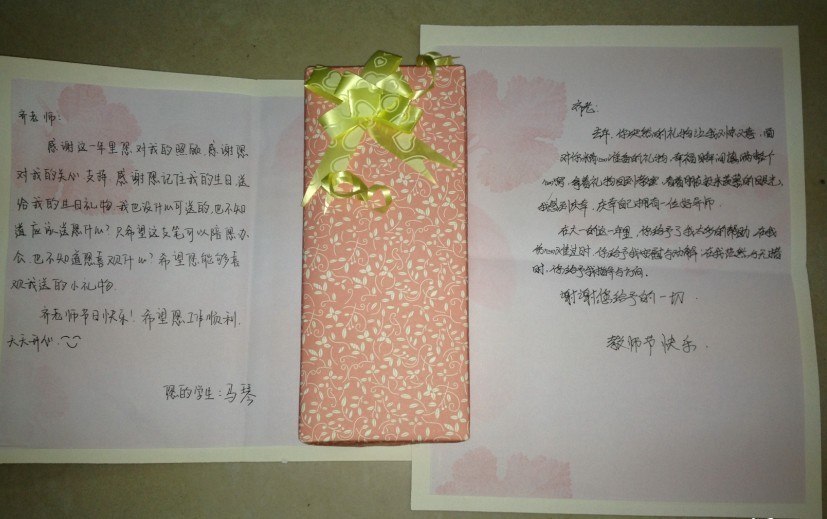 齐老师:
感谢这一年里您对我的照顾,感谢您
对我的关心支持,感谢您记住我的生日,送
给我的生日礼物.我也没什么可送的,也不知
道应该送您什么?只希望这支笔可以陪您办
公,也不知道您喜欢什么?希望您能够喜
欢我送的小礼物.
齐老师节日快乐!希望您工作顺利,
天天开心.
您的学生:马琴
齐老:
去年,你送给我的礼物让我
对你精心准备的礼物,幸福瞬间
看着礼物回到
我感到庆幸,庆幸自己拥有一位好导师.
在大一的这一年里,你给予了我太多的帮助,在我
难过时,你给予我安慰与劝解,在我
时,你给予我指导与方向.
谢谢您给予的一切.
教师节快乐.